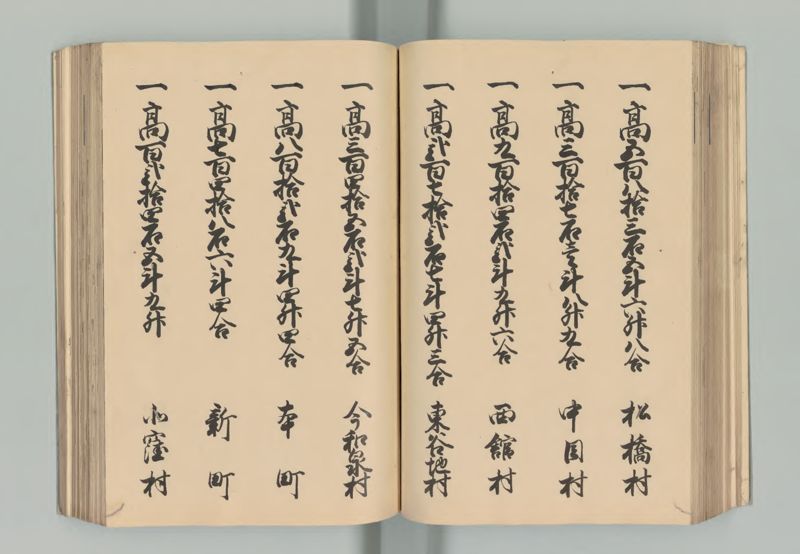 一高五百八拾三石五斗六升八合 松橋村
一高三百拾七石壱斗八升九合 中目村
一高九百拾四石弐斗九升六合 西館村
一高弐百七拾弐石七斗四升三合 東谷地村
一高三百四拾五石弐斗七升五合 今和泉村
一高八百拾弐石九斗四升四合 本町
一高七百四拾八石六斗四合 新町
一高百弐拾四石五斗九升 小窪村